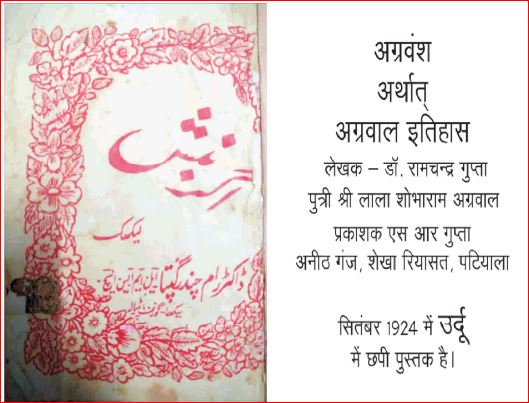 لیکھک
ڈاکٹر رام چندر گپتا
अग्रवंश
अर्थात्
अग्रवाल इतिहास
लेखक – डॉ. रामचन्द्र गुप्ता
पुत्री श्री लाला शोभाराम अग्रवाल
प्रकाशक एस आर गुप्ता
अनीठ गंज, शेखा रियासत, पटियाला
सितंबर 1924 में उर्दू
में छपी पुस्तक है।